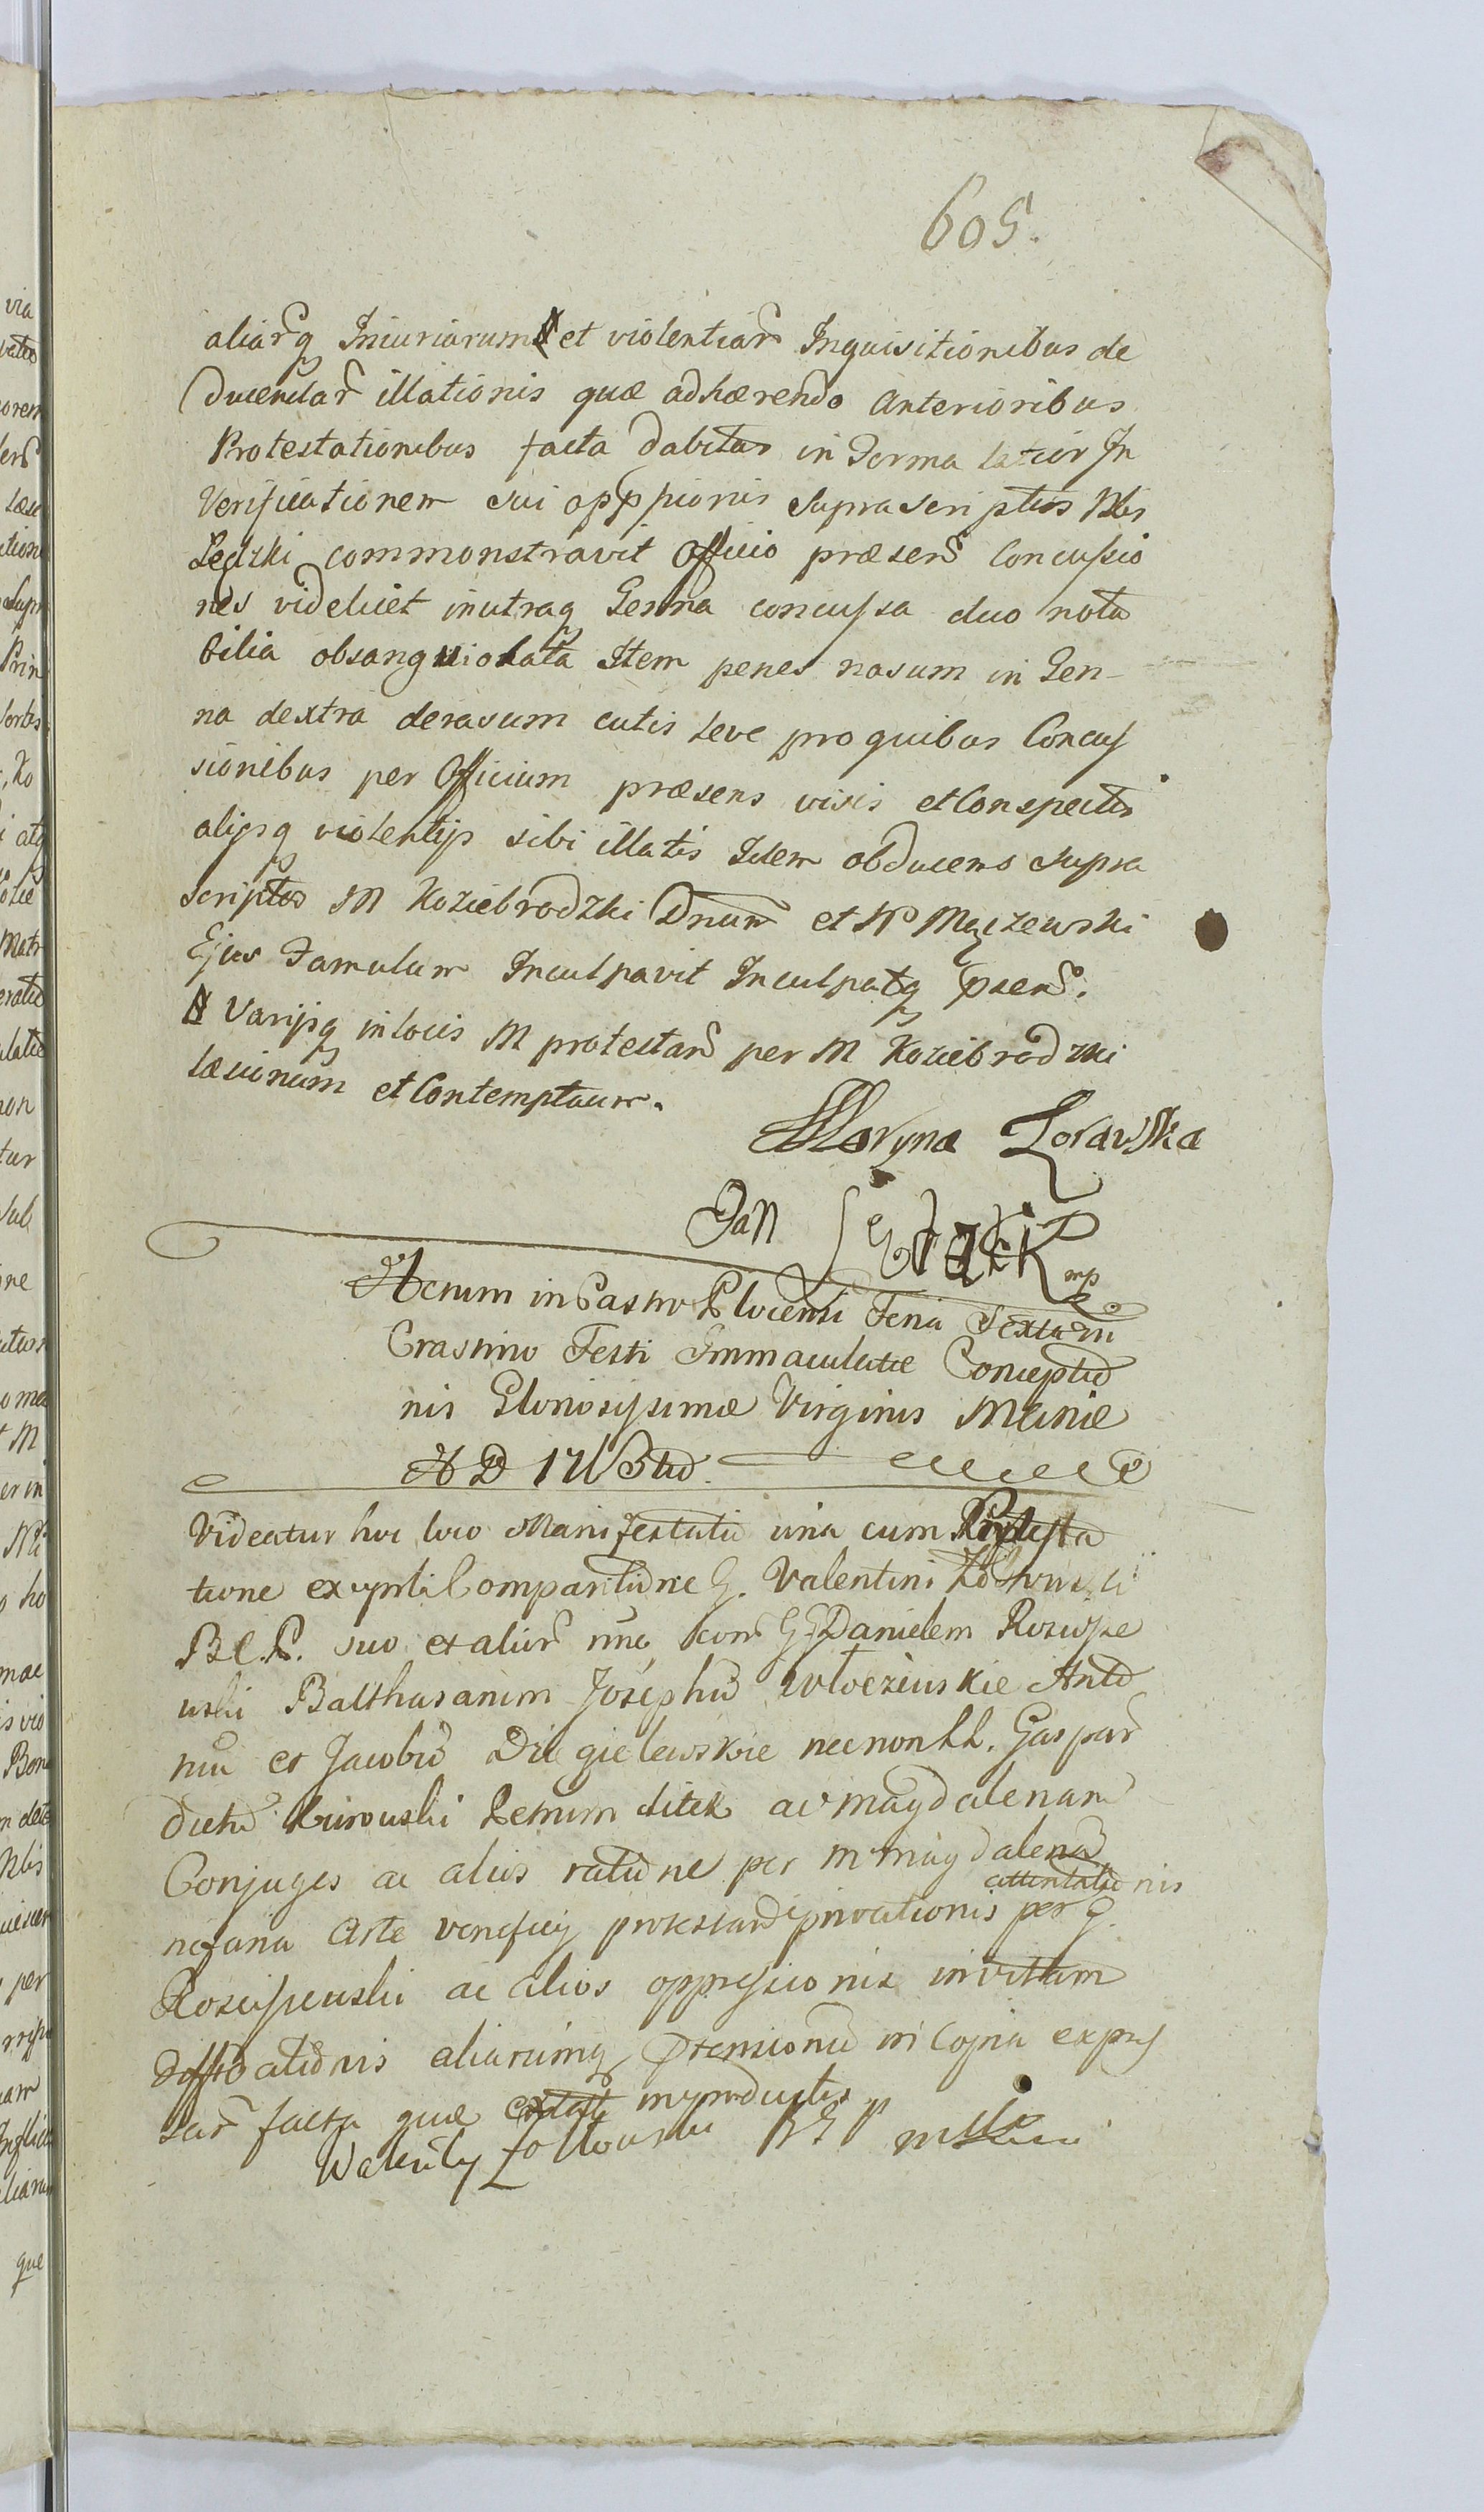 605.
aliarq Iniuriarum et violentiar Inquisitionibus de
ducendar illationis quæ adhærendo Anterioribus
Protestationibus facta dabitur in Forma latior In
Verificationem sui oppionis suprascriptus Nblis
Ledzki commonstravit Officio præsen Concussio
nes videlicet inutraq Genna concussa duo nota
bilia obsangviolata Item penes nasum in Gen-
na dextra derasum cutis leve pro quibus Concus
sionibus per Officium præsens visis et Conspectis
alijsq violentijs sibi illatis Idem obducens supra
scriptos M Koziebrodzki Dnum et N Mączewski
Ejus Famulum Inculpavit Inculpatq psen.
Varijsq in locis M protestan per M Koziebrodzki
læsionum et Contemptuum.
Maryna Zorawska
Jan mp
Actum in Castro Plocensi Feria Sexta in
Crastino Festi Immaculatæ Conceptio
nis Gloriosissimæ Virginis Mariæ
A D
Videatur hoc loco Manifestatio una cum Protesta
tione ex Comparitione G. Valentini
B.C.P. suo et alior nne con GG Danielem Roscisze
wski Balthasarum Josephu Wloczewskie Anto
niu et Jacobu Dzięgielewskie necnon LL. Gaspar
dictu Kurowski ac Magdalenam
Conjuges ac alios ratione per M Magdalena
attentatio nis
nefaria Arte veneficij protestan privationis per G.
Rosciszewski ac alios oppressionis invitam
diffidationis aliarumq prensionu in Copia expres
sar facta quæ extat in productis